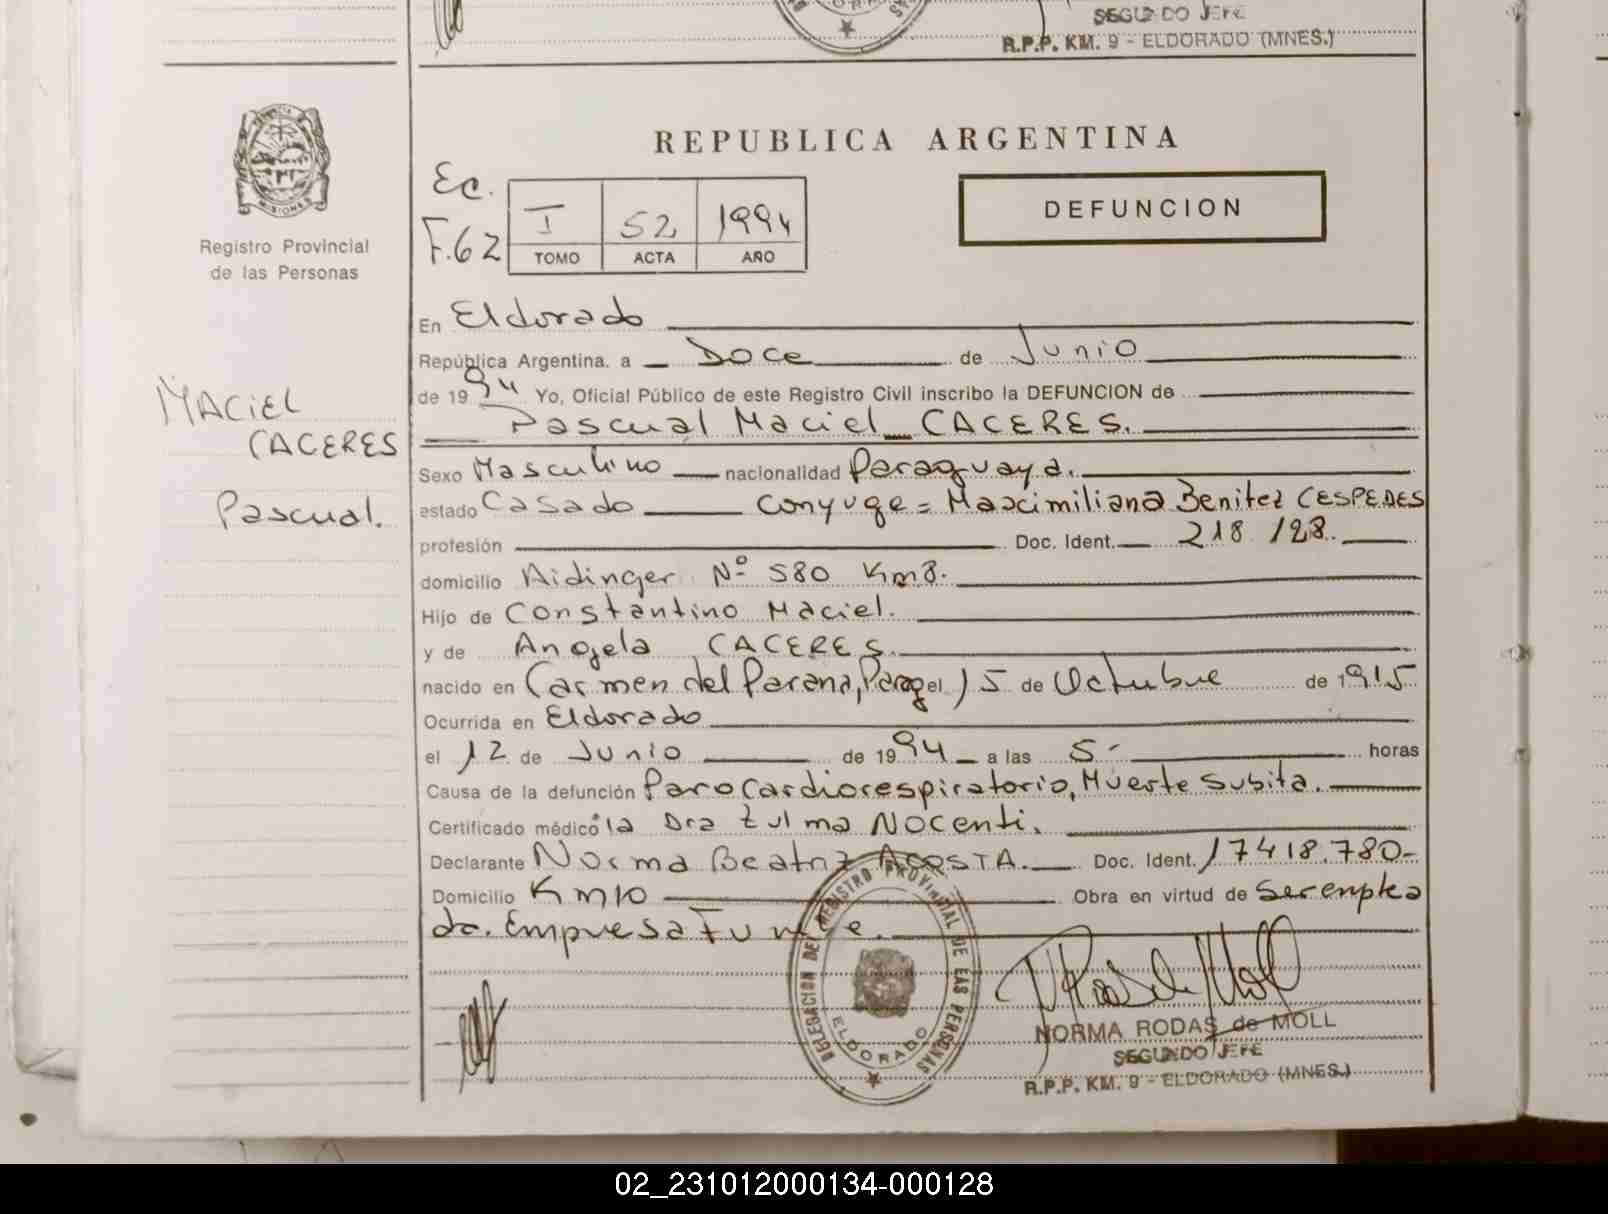 SEGUNDO JEFE
R.P.P. KM. 9 - ELDORADO (MNES.)
MISIONES
Registro Provincial
de las Personas
MACIEL
CACERES
Pascual.
REPUBLICA ARGENTINA
Ec.
F.62
I 52 1994
TOMO ACTA AÑO
DEFUNCION
En Eldorado
República Argentina. a Doce de Junio
de 1994 Yo, Oficial Público de este Registro Civil inscribo la DEFUNCION de
Pascual Maciel CACERES.
Sexo Masculino nacionalidad Paraguaya.
estado Casado Conyuge = Maximiliana Benitez CESPEDES
profesión Doc. Ident. 218.128.
domicilio Aidinger Nº 580 Km8.
Hijo de Constantino Maciel.
y de Angela CACERES.
nacido en Carmen del Parana, Parag el 15 de Octubre de 1915
Ocurrida en Eldorado
el 12 de Junio de 1994 a las 5- horas
Causa de la defunción Paro Cardiorespiratorio, Muerte Subita.
Certificado médico la Dra Zulma NOCenti.
Declarante Norma Beatriz ACOSTA. Doc. Ident. 17418.780-
Domicilio Km10 Obra en virtud de Ser emplea
do. Empresa Funebre.
DELEGACION DEL REGISTRO PROVINCIAL DE LAS PERSONAS
ELDORADO
NORMA RODAS de MOLL
SEGUNDO JEFE
R.P.P. KM. 9 - ELDORADO (MNES.)
02_231012000134-000128